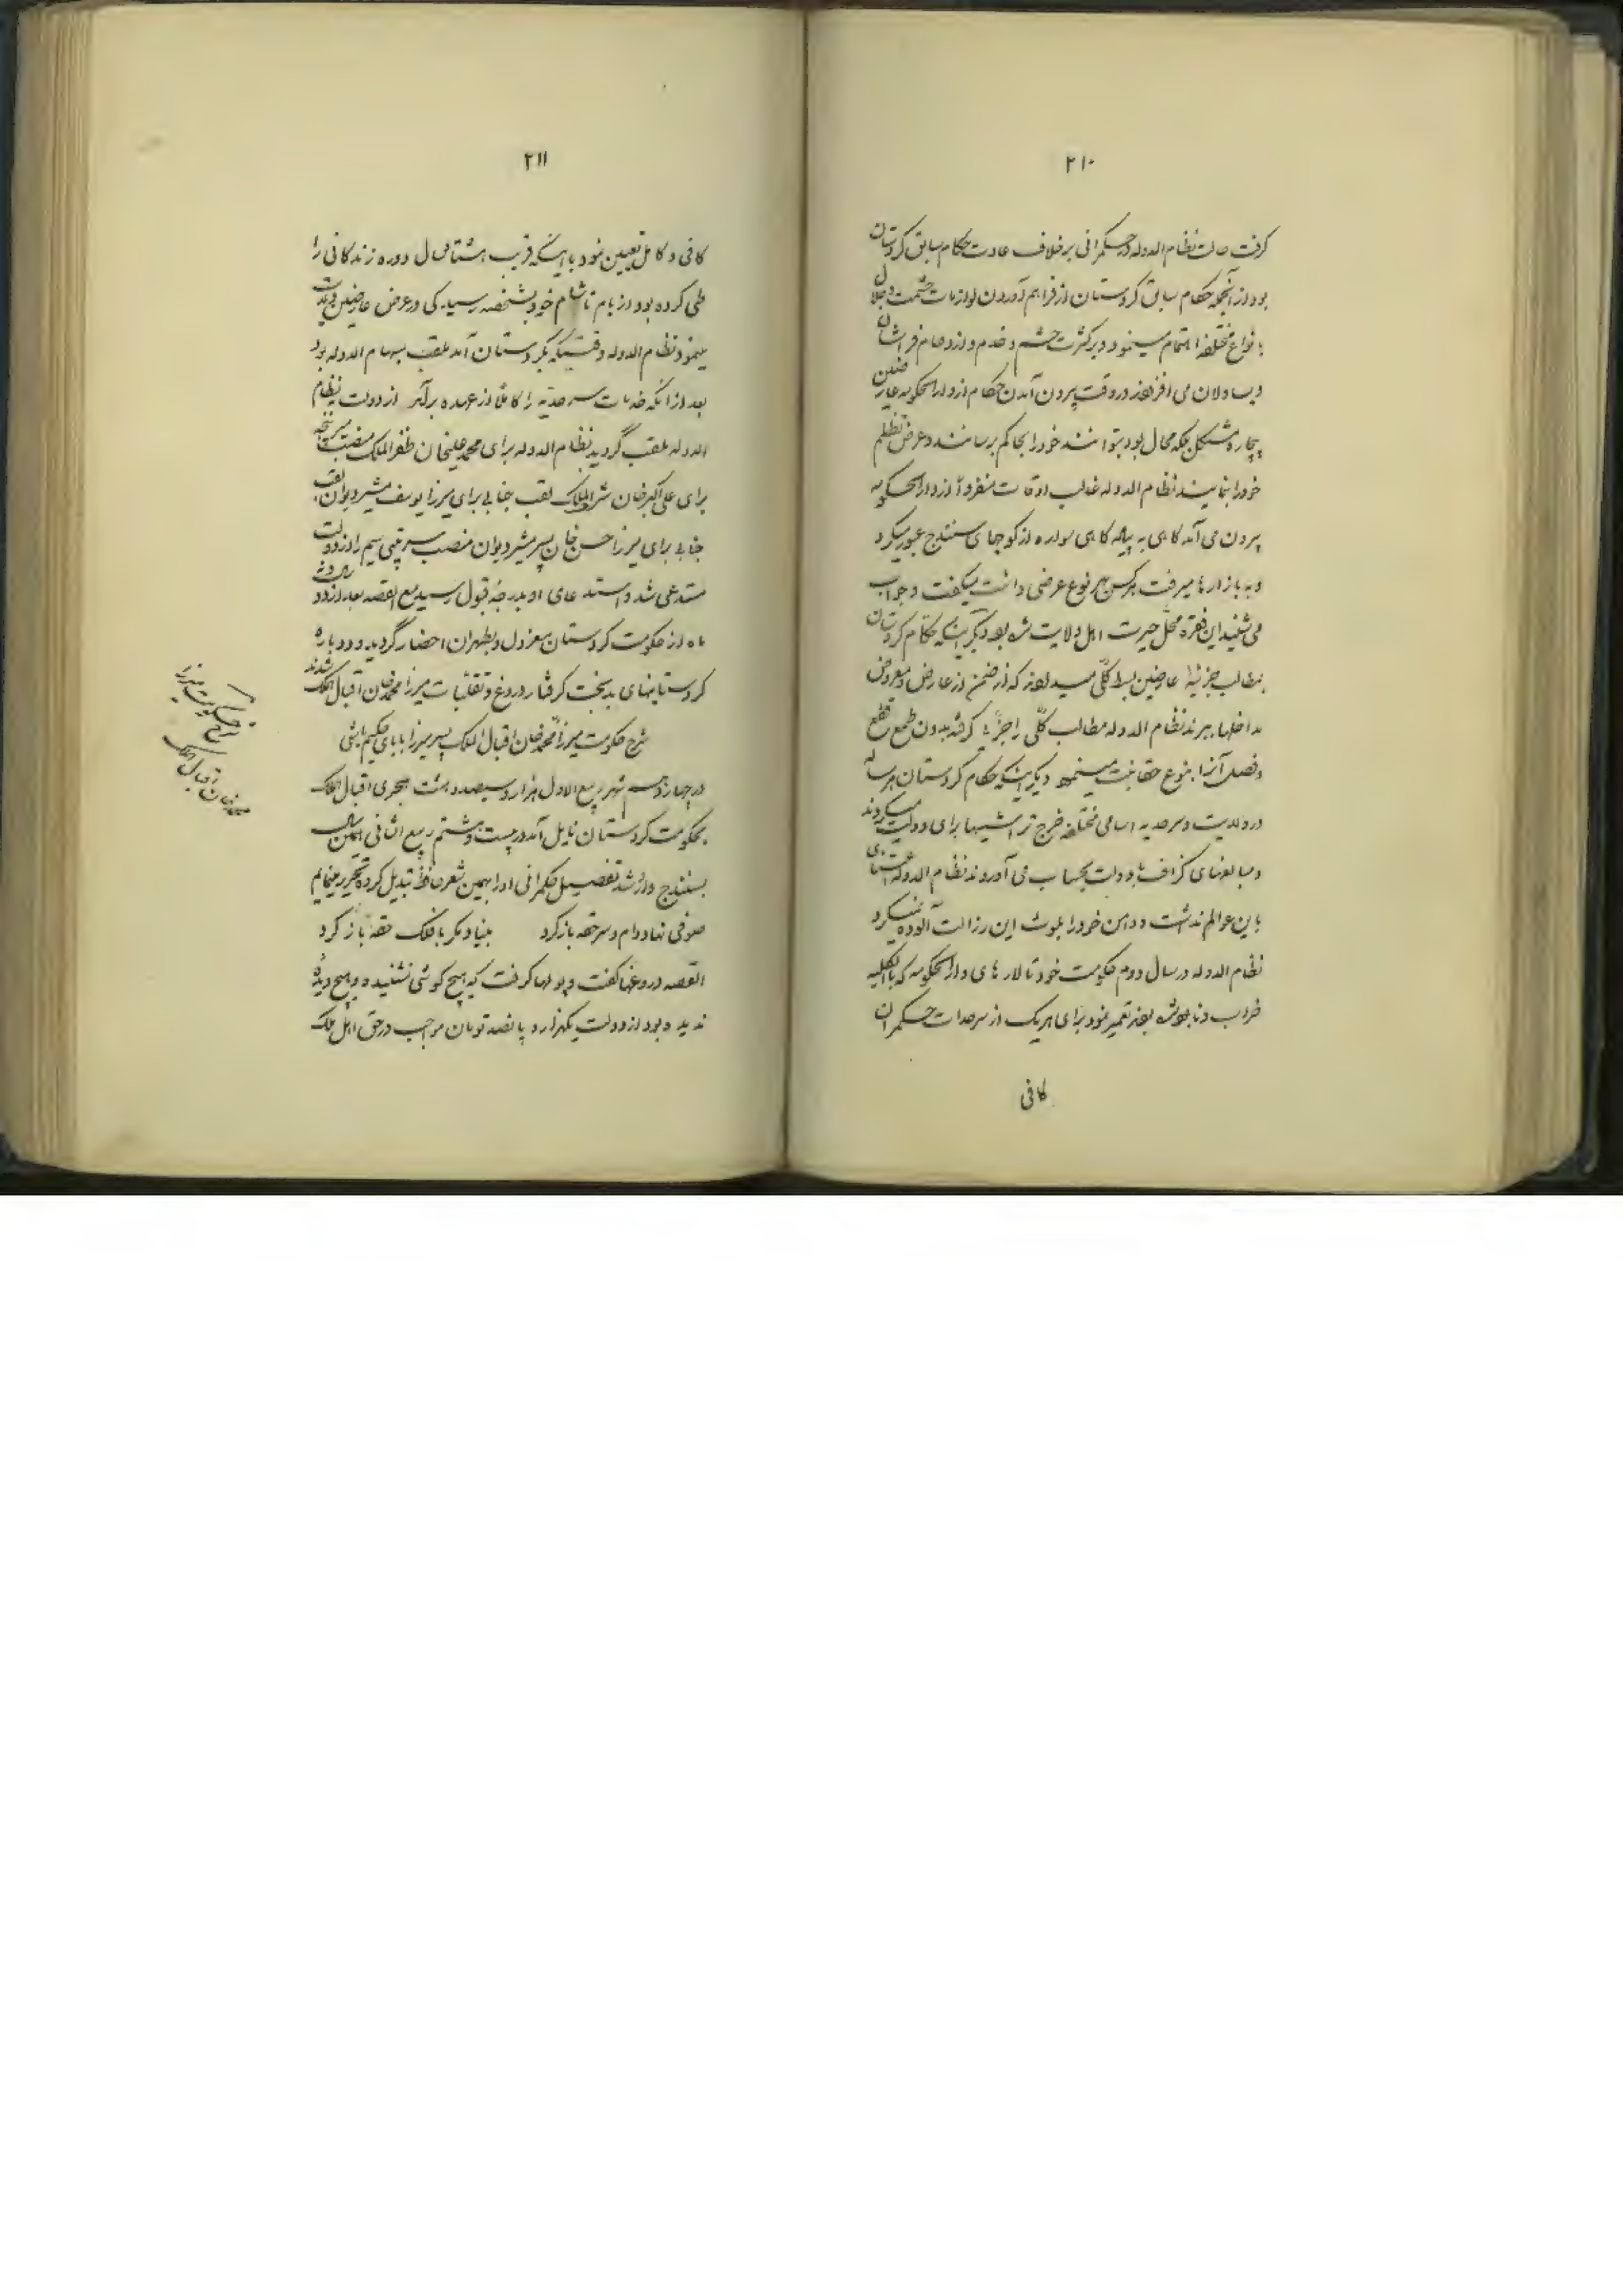 ۲۱۰
گرفت حالت نظام الدوله در حکمرانی بر خلاف عادت حکام سابق کردستان
بود از آنجمله حکام سابق کردستان از فراهم آوردن لوازمات حشمت و جلال
بانواع مختلفه اهتمام مینمود و بر کثرت حشم و خدم و ازدحام فراشان
و یساولان می افزودند در وقت بیرون آمدن حکام از دار الحکومه عارضین
بیچاره مشکل بلکه محال بود بتوانند خود را بحاکم برسانند و عرض تظلم
خود را بنمایند نظام الدوله غالب اوقات منفرداً از دار الحکومه
بیرون می آمد گاهی به پیاده گاهی سواره از کوچهای سنندج عبور میکرد
و به بازارها میرفت هر کس هر نوع عرضی داشت میگفت و جواب
می شنید این فقره محل حیرت اهل ولایت شده بود دیگر اینکه حکام کردستان
بمطالب جزئیه عارضین بسط کلی میدادند که از ضمن از عارض و معروض
مداخلها ببرند نظام الدوله مطالب کلی را جزء گرفته بدون طمع قطع
و فصل آنرا بنوع حقانیت مینمود دیگر اینکه حکام کردستان هر ساله
در ولایت و سرحدیه اسامی مختلفه خرج تراشیها برای دولت میکردند
و مبالغهای گزاف با دولت بحساب می آوردند نظام الدوله اعتنائی
باین عوالم نداشت و دامن خود را بلوث این رزالت آلوده نمیکرد
نظام الدوله در سال دوم حکومت خود تالارهای دار الحکومه که بالکلیه
خراب و نابود شده بودند تعمیر نمود برای هر یک از سرحدات حکمران
کافی
۲۱۱
کافی و کامل تعیین نمود با اینکه قریب هشتاد سال دوره زندگانی را
طی کرده بود از بام تا شام خود بشخصه رسیدگی در عرض عارضین
مینمود نظام الدوله وقتیکه بکردستان آمد ملقب بسهام الدوله بود
بعد از آنکه خدمات سرحدیه را کاملا از عهده بر آمد از دولت بنظام
الدوله ملقب گردید نظام الدوله برای محمد علیخان ظفر الملک منصب سرتیپی
برای علی اکبر خان شرف الملک لقب جنابی برای میرزا یوسف مشیر دیوان لقب
جنابی برای میرزا حسن خان پسر مشیر دیوان منصب سرتیپی سیم را از دولت
مستدعی شد و استدعای او بدرجه قبول رسید مع القصه بعد از دو
ماه از حکومت کردستان معزول و بطهران احضار گردید و دوباره
کردستانیهای بدبخت گرفتار دروغ و تقلبات میرزا محمد خان اقبال الملک شدند
شرح حکومت میرزا محمد خان اقبال الملک پسر میرزا بابای حکیم باشی
در چهاردهم شهر ربیع الاول هزار و سیصد و هشت هجری اقبال الملک
بحکومت کردستان نایل آمد در بیست و هشتم ربیع الثانی همین سال
بسنندج وارد شد تفصیل حکمرانی او را بهمین شعر حافظ تبدیل کرده تحریر مینمایم
صوفی نهاد دام و سر حقه باز کرد بنیاد مکر با فلک حقه باز کرد
القصه دروغها گفت و پولها گرفت که هیچ گوشی نشنیده و هیچ دیدهٔ
ندیده بود از دولت یکهزار و پانصد تومان مواجب در حق اهل ملک
شرح حکومت میرزا
محمد خان اقبال الملک